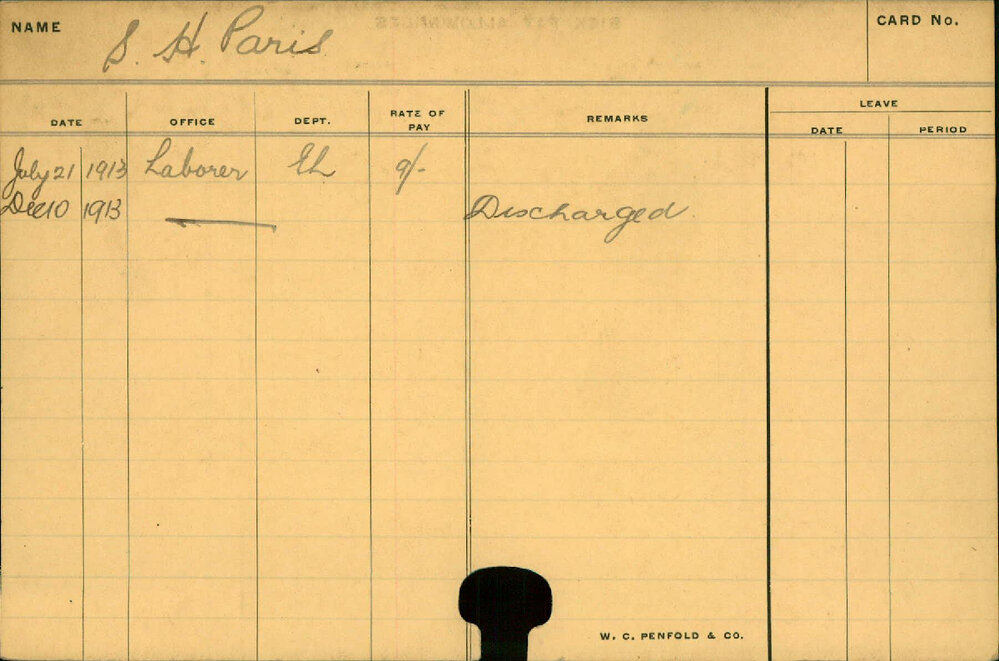 NAME S. H. Paris CARD No.
LEAVE
DATE OFFICE DEPT. RATE OF PAY REMARKS DATE PERIOD
July 21 1913 Laborer EL 9/-
Dec 10 1913 Discharged
W. C. PENFOLD & CO.